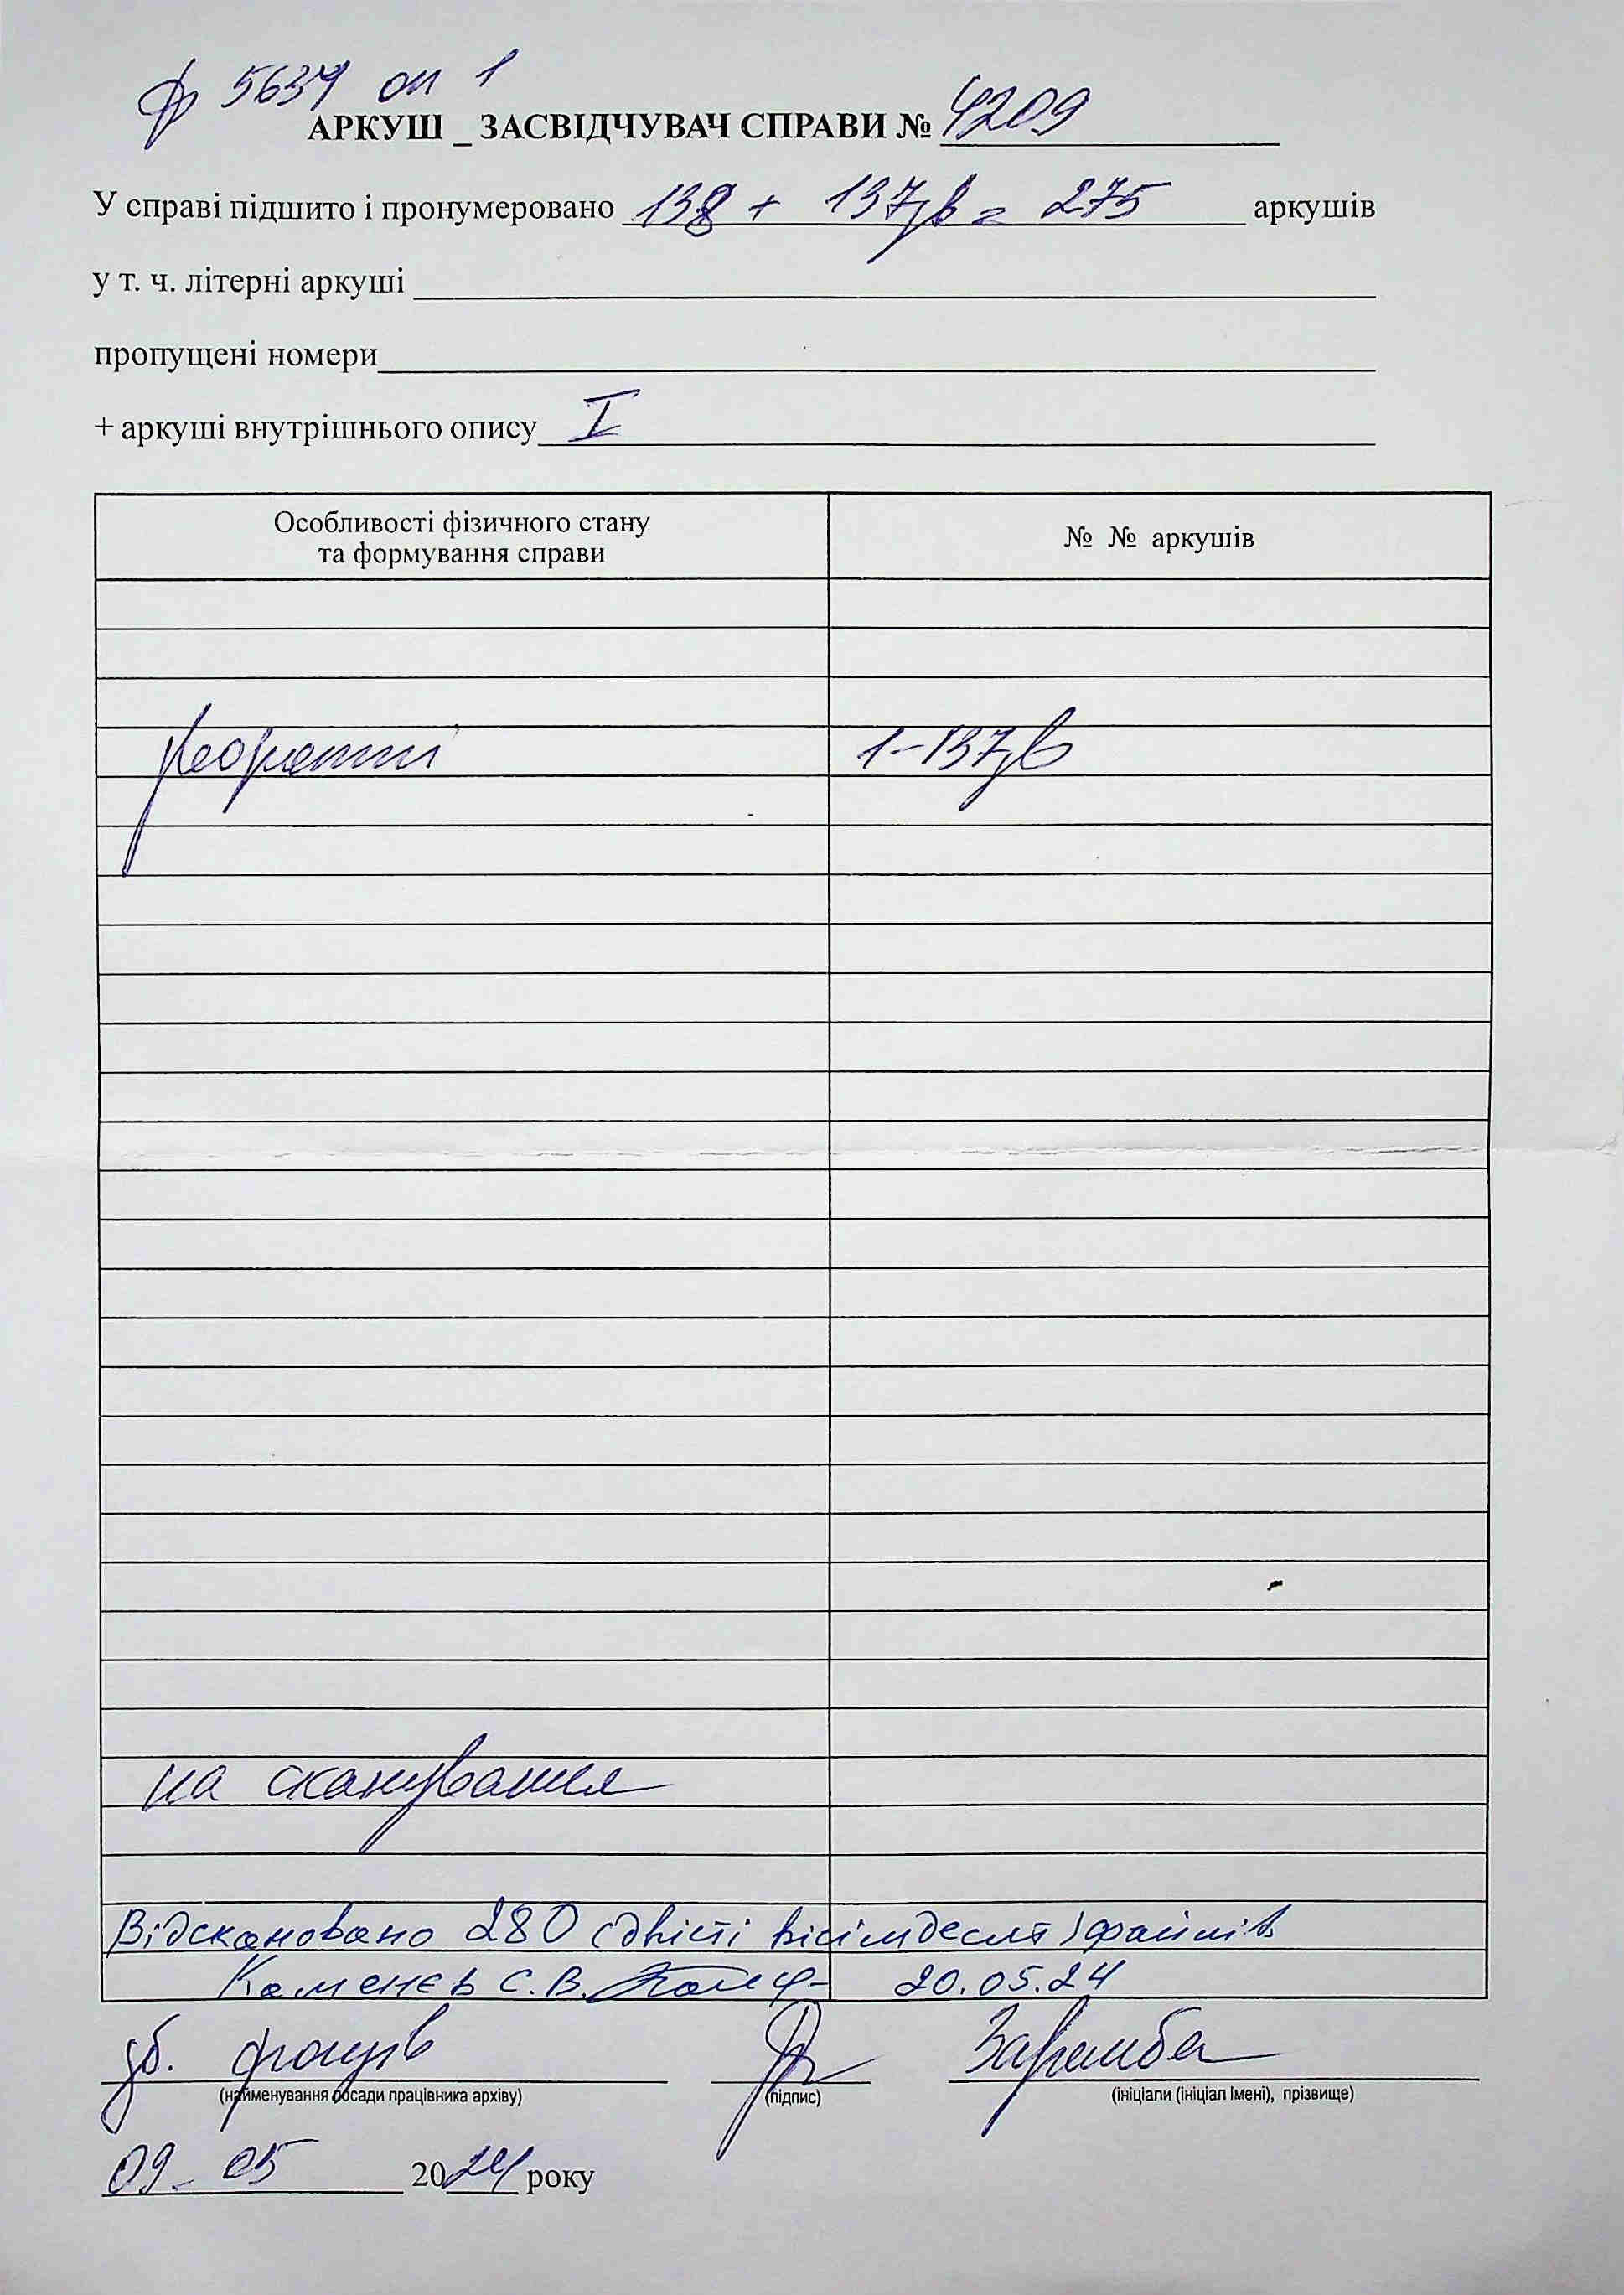 ф 5639 оп 1
АРКУШ _ ЗАСВІДЧУВАЧ СПРАВИ № 4209
У справі підшито і пронумеровано 138 + 137зв = 275 аркушів
у т. ч. літерні аркуші
пропущені номери
+ аркуші внутрішнього опису I
Особливості фізичного стану та формування справи
№ № аркушів
1-137зв
на сканування
Відскановано 280 (двісті вісімдесят) файлів
Каменєв С.В. 20.05.24
зб. фондів Заремба
(найменування посади працівника архіву) (підпис) (ініціали (ініціал імені), прізвище)
09 - 05 2024 року